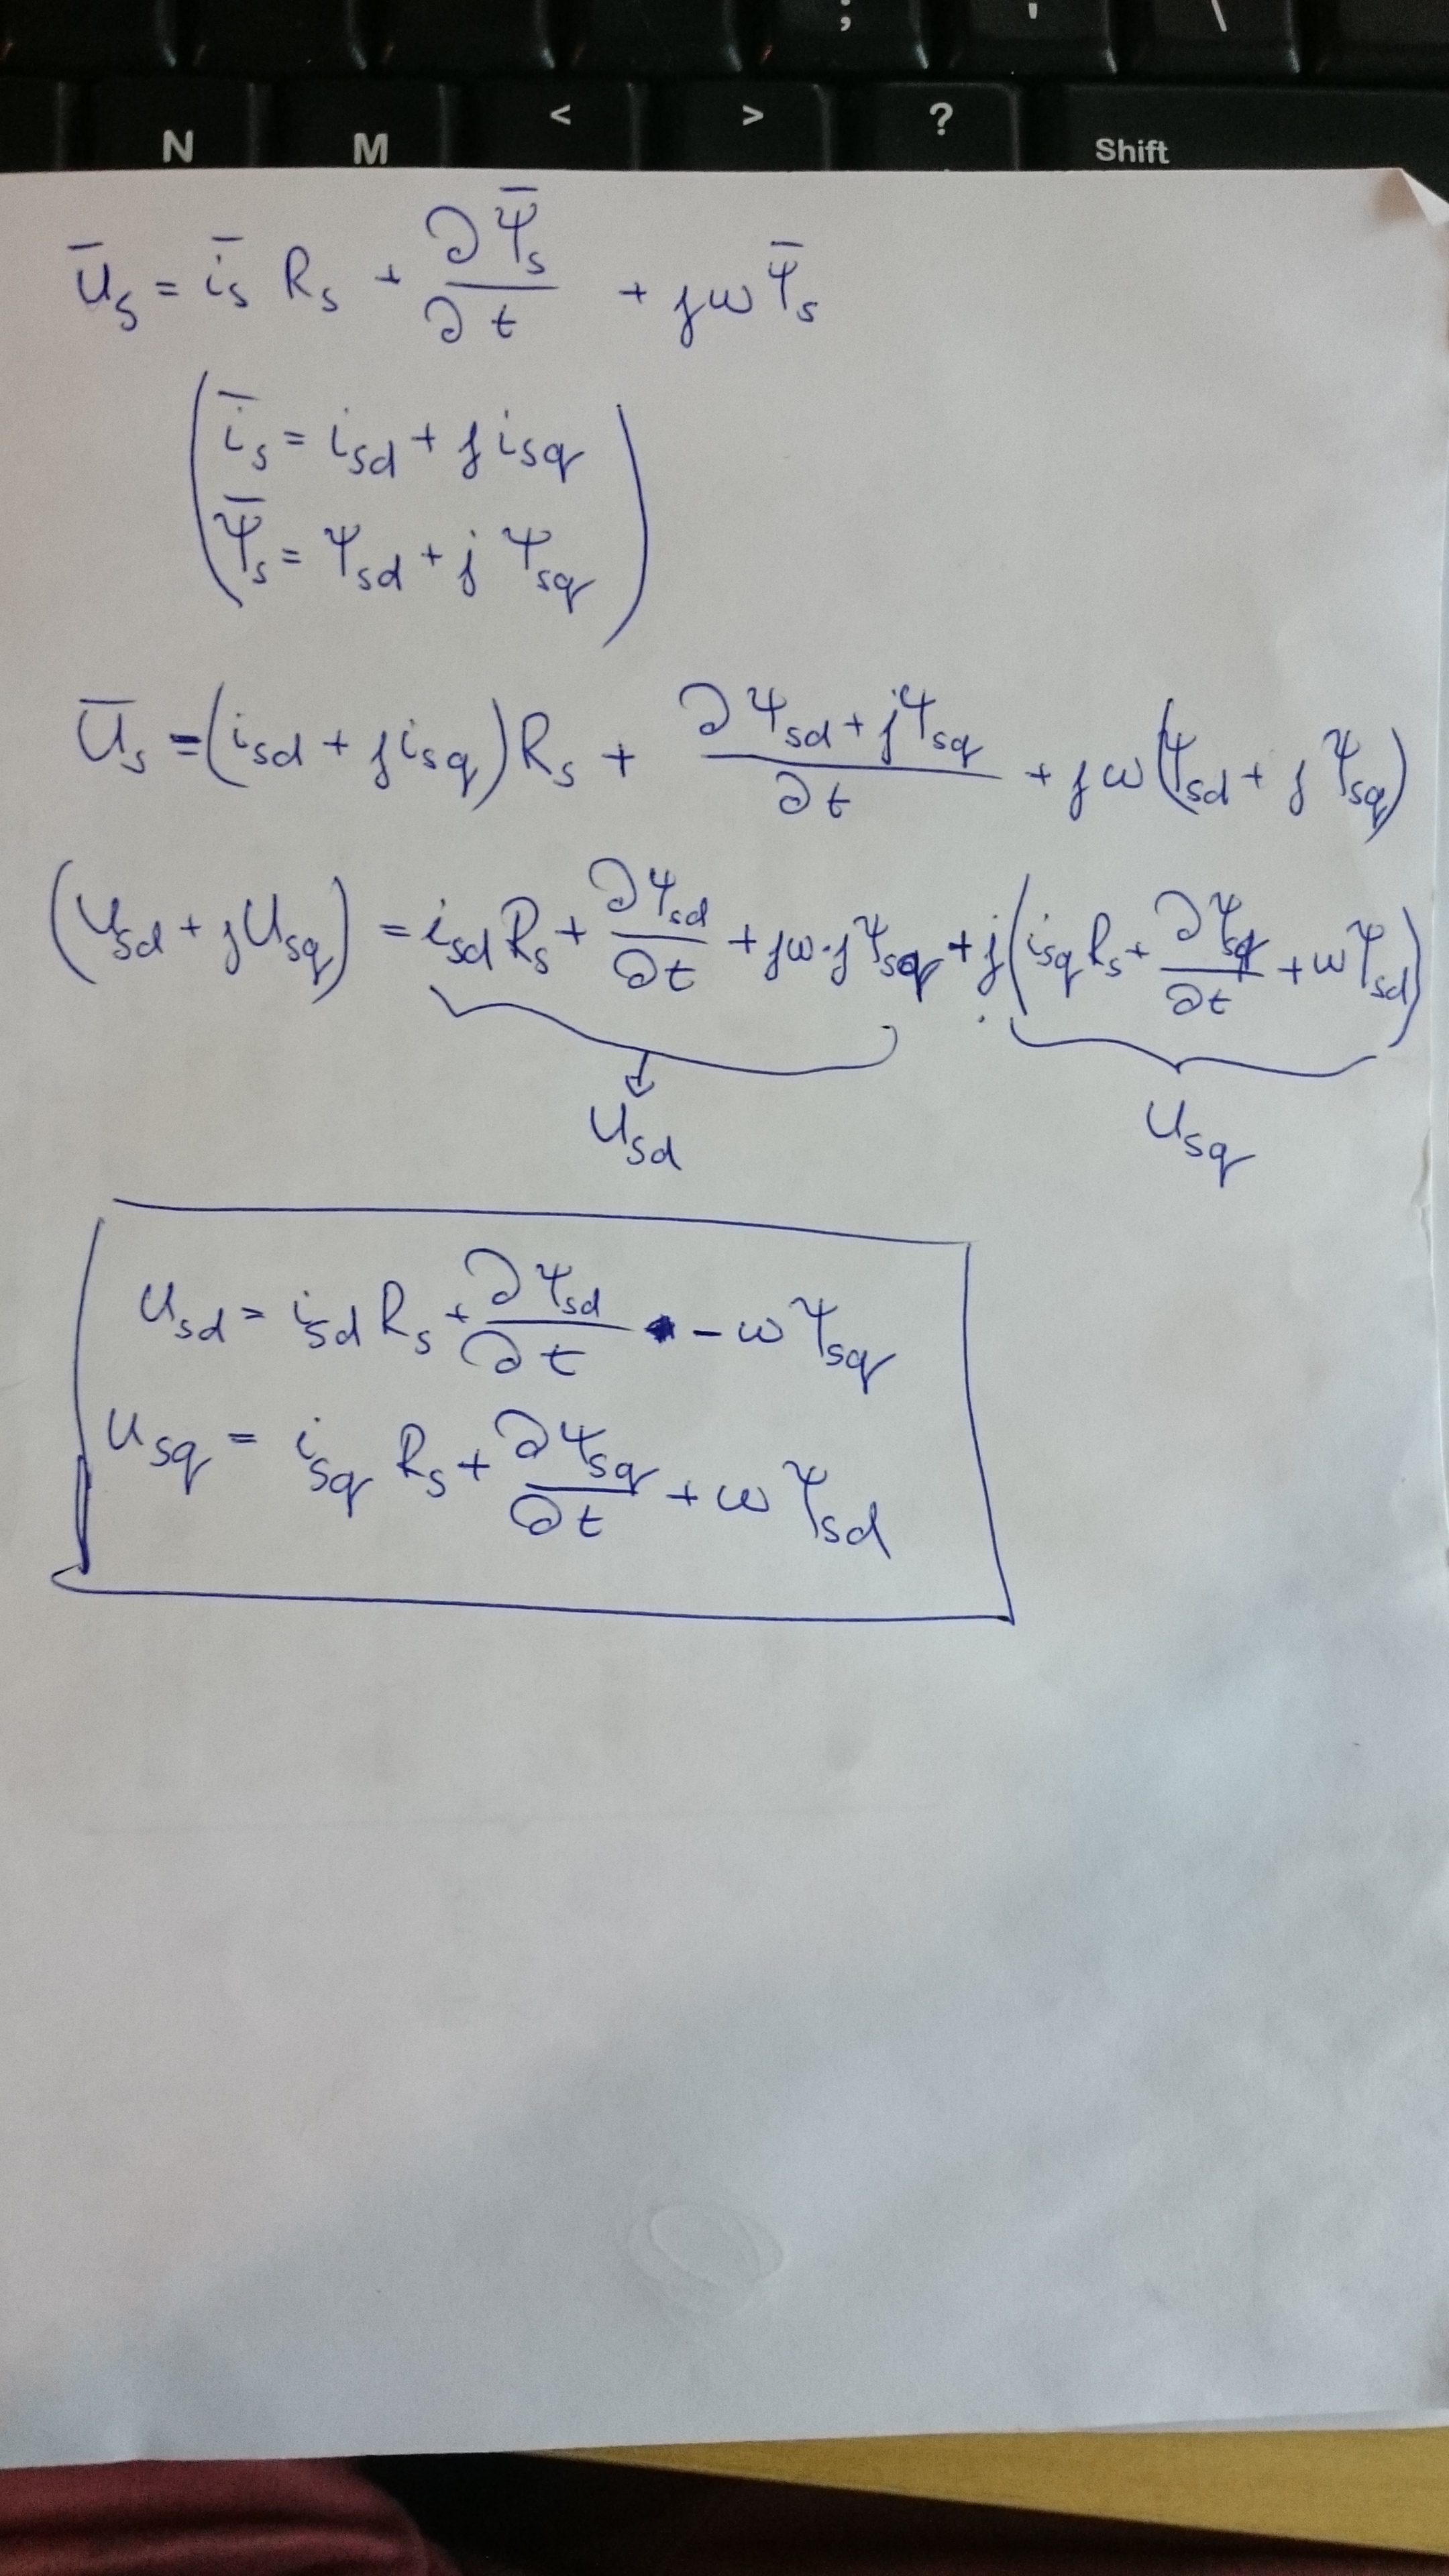 ;
'
\
N M < > ? Shift
u̅ₛ = i̅ₛ Rₛ + ∂Ψ̅ₛ/∂t + jωΨ̅ₛ
i̅ₛ = i_sd + j i_sq
Ψ̅ₛ = Ψ_sd + j Ψ_sq
U̅ₛ = (i_sd + j i_sq) Rₛ + ∂Ψ_sd + jΨ_sq/∂t + jω(Ψ_sd + jΨ_sq)
(U_sd + jU_sq) = i_sd Rₛ + ∂Ψ_sd/∂t + jω·jΨ_sq + j(i_sq Rₛ + ∂Ψ_sq/∂t + ωΨ_sd)
↓
U_sd U_sq
U_sd = i_sd Rₛ + ∂Ψ_sd/∂t - ωΨ_sq
U_sq = i_sq Rₛ + ∂Ψ_sq/∂t + ωΨ_sd